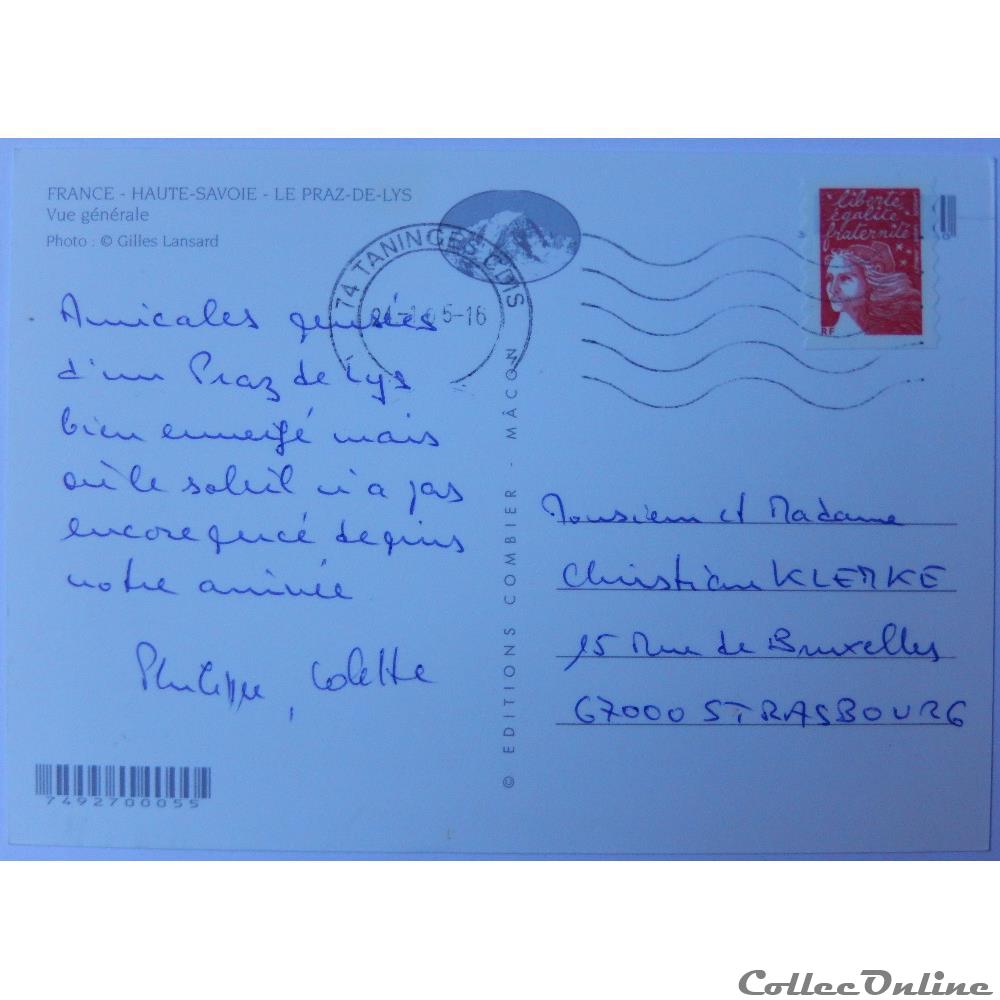 FRANCE - HAUTE-SAVOIE - LE PRAZ-DE-LYS
Vue générale
Photo : © Gilles Lansard
74 TANINGES CDIS
5-16
liberté
égalité
fraternité
RF
Amicales pensées
d'un Praz de Lys
bien enneigé mais
où le soleil n'a pas
encore percé depuis
notre arrivée
Philippe, Colette
© EDITIONS COMBIER - MÂCON
Monsieur et Madame
Christian KLEMKE
15 Rue de Bruxelles
67000 STRASBOURG
7492700055
CollecOnline